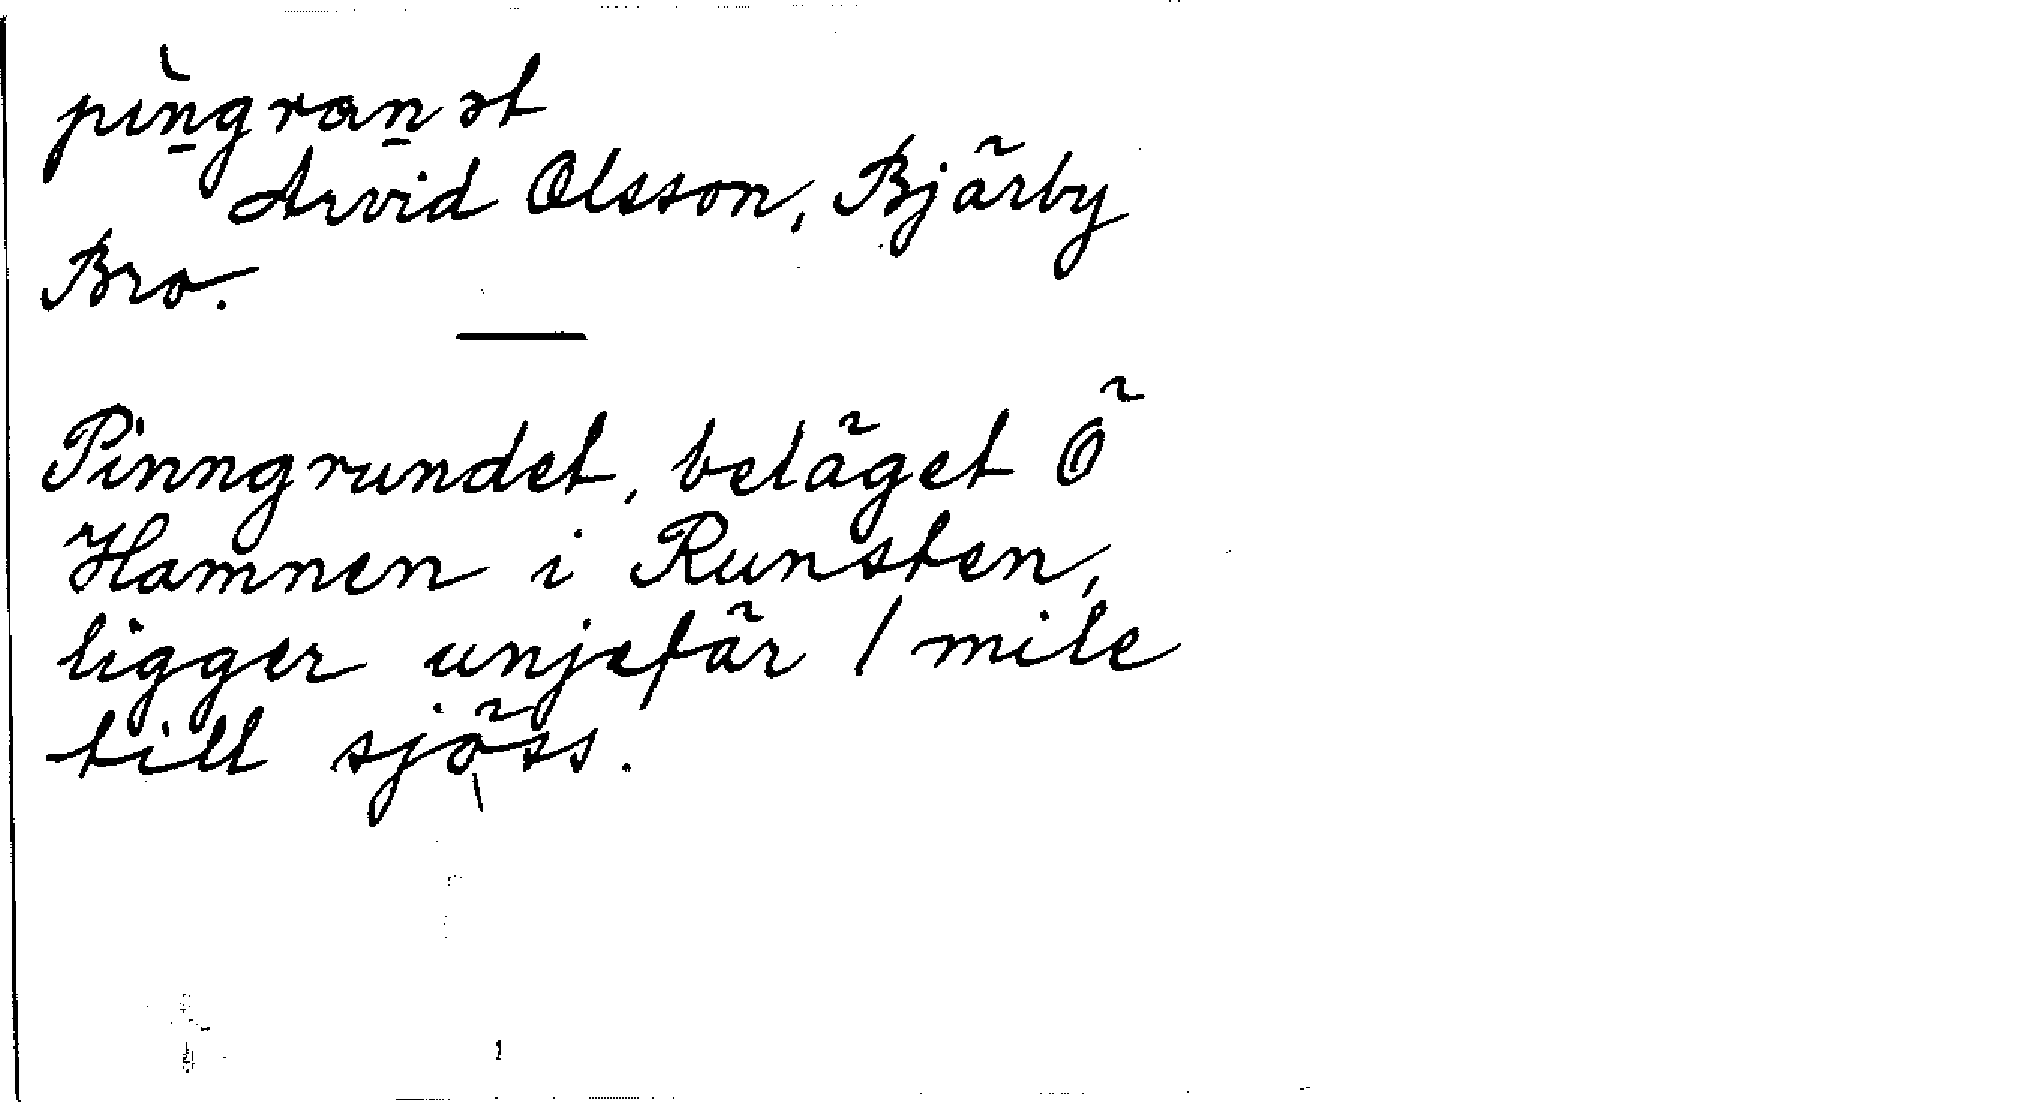 pìn̲gran̲ət
Arvid Olsson, Bjärby
Bro.
Pinngrundet, beläget Ö
Hamnen i Runsten,
ligger unjefär 1 mile
till sjöss.